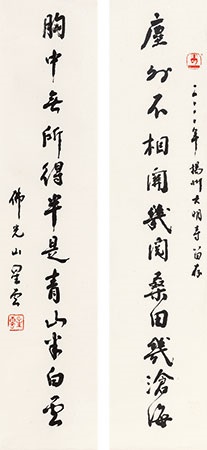 二〇〇〇年揚州大明寺留存
塵外不相關幾閱桑田幾滄海
胸中無所得半是青山半白雲
佛光山星雲